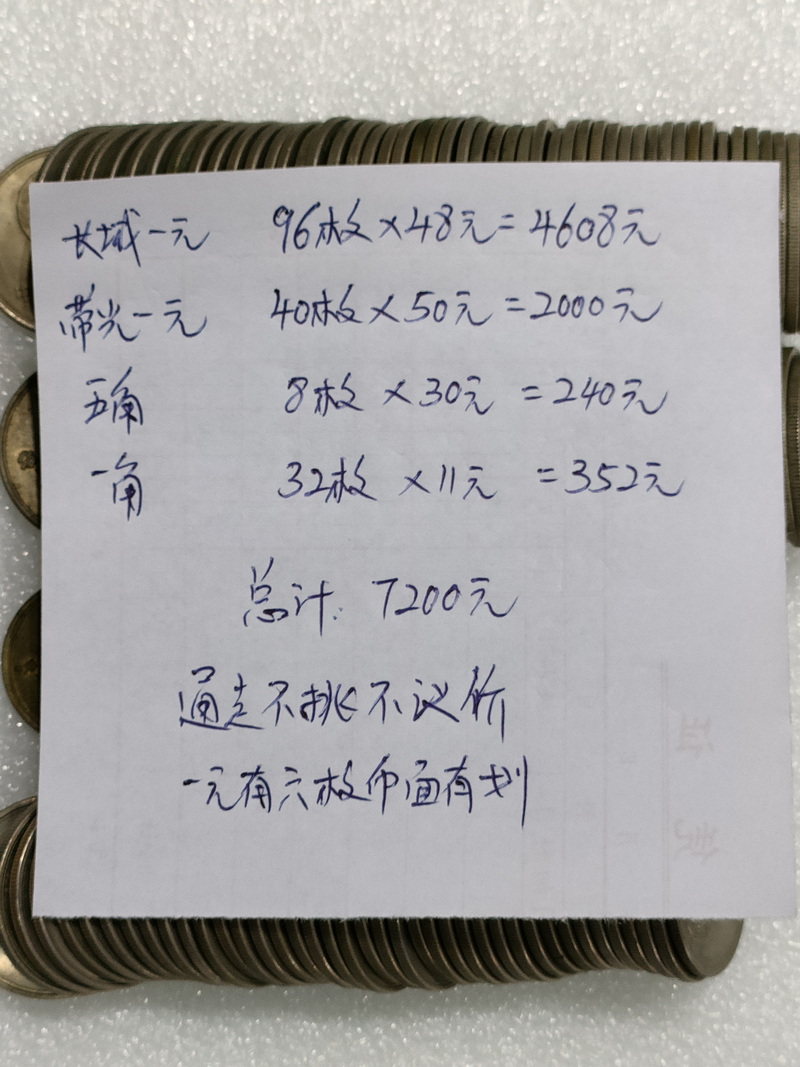 长城一元 96枚×48元=4608元
带光一元 40枚×50元=2000元
五角 8枚×30元=240元
一角 32枚×11元=352元
总计: 7200元
通走不挑不议价
一元有六枚币面有划